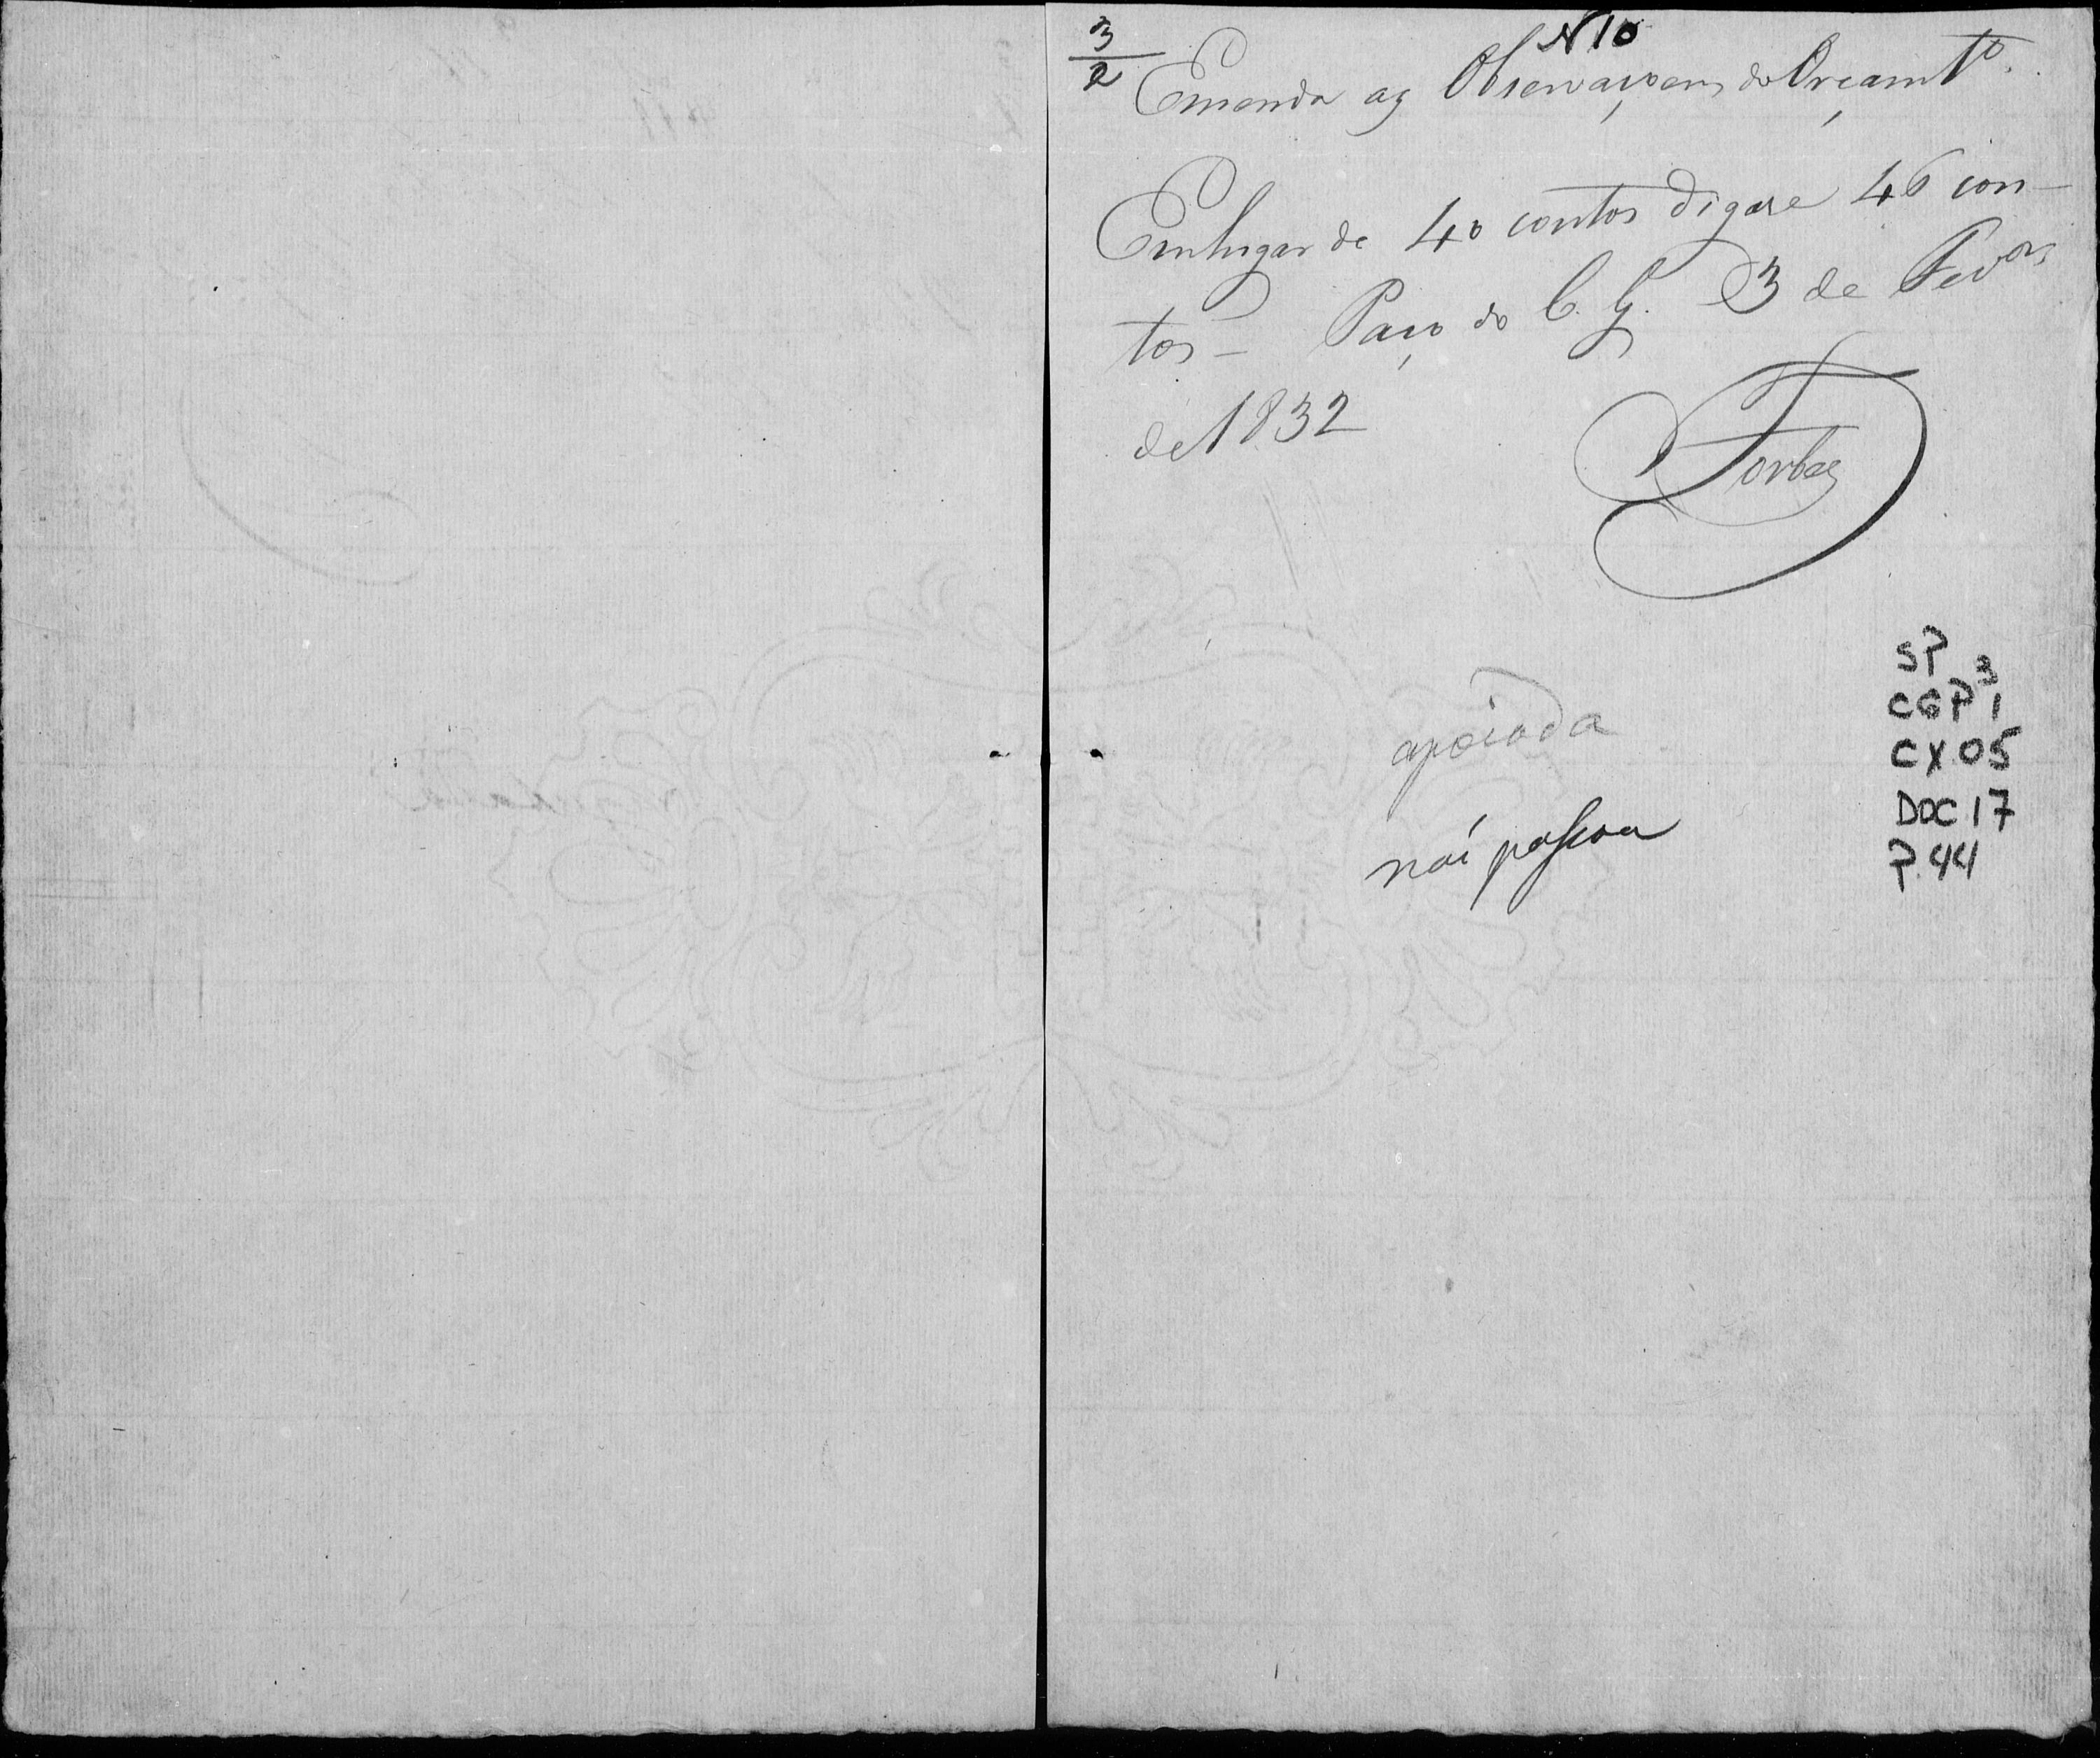 3
2
N 10
Emenda as Observaçoens do Orçamto.
Em lugar de 40 contos digase 46 con-
tos - Paço do C. G. 3 de Fevro
de 1832
apoiada
não passou
SP
CGP1 3
CX 05
DOC 17
P. 44